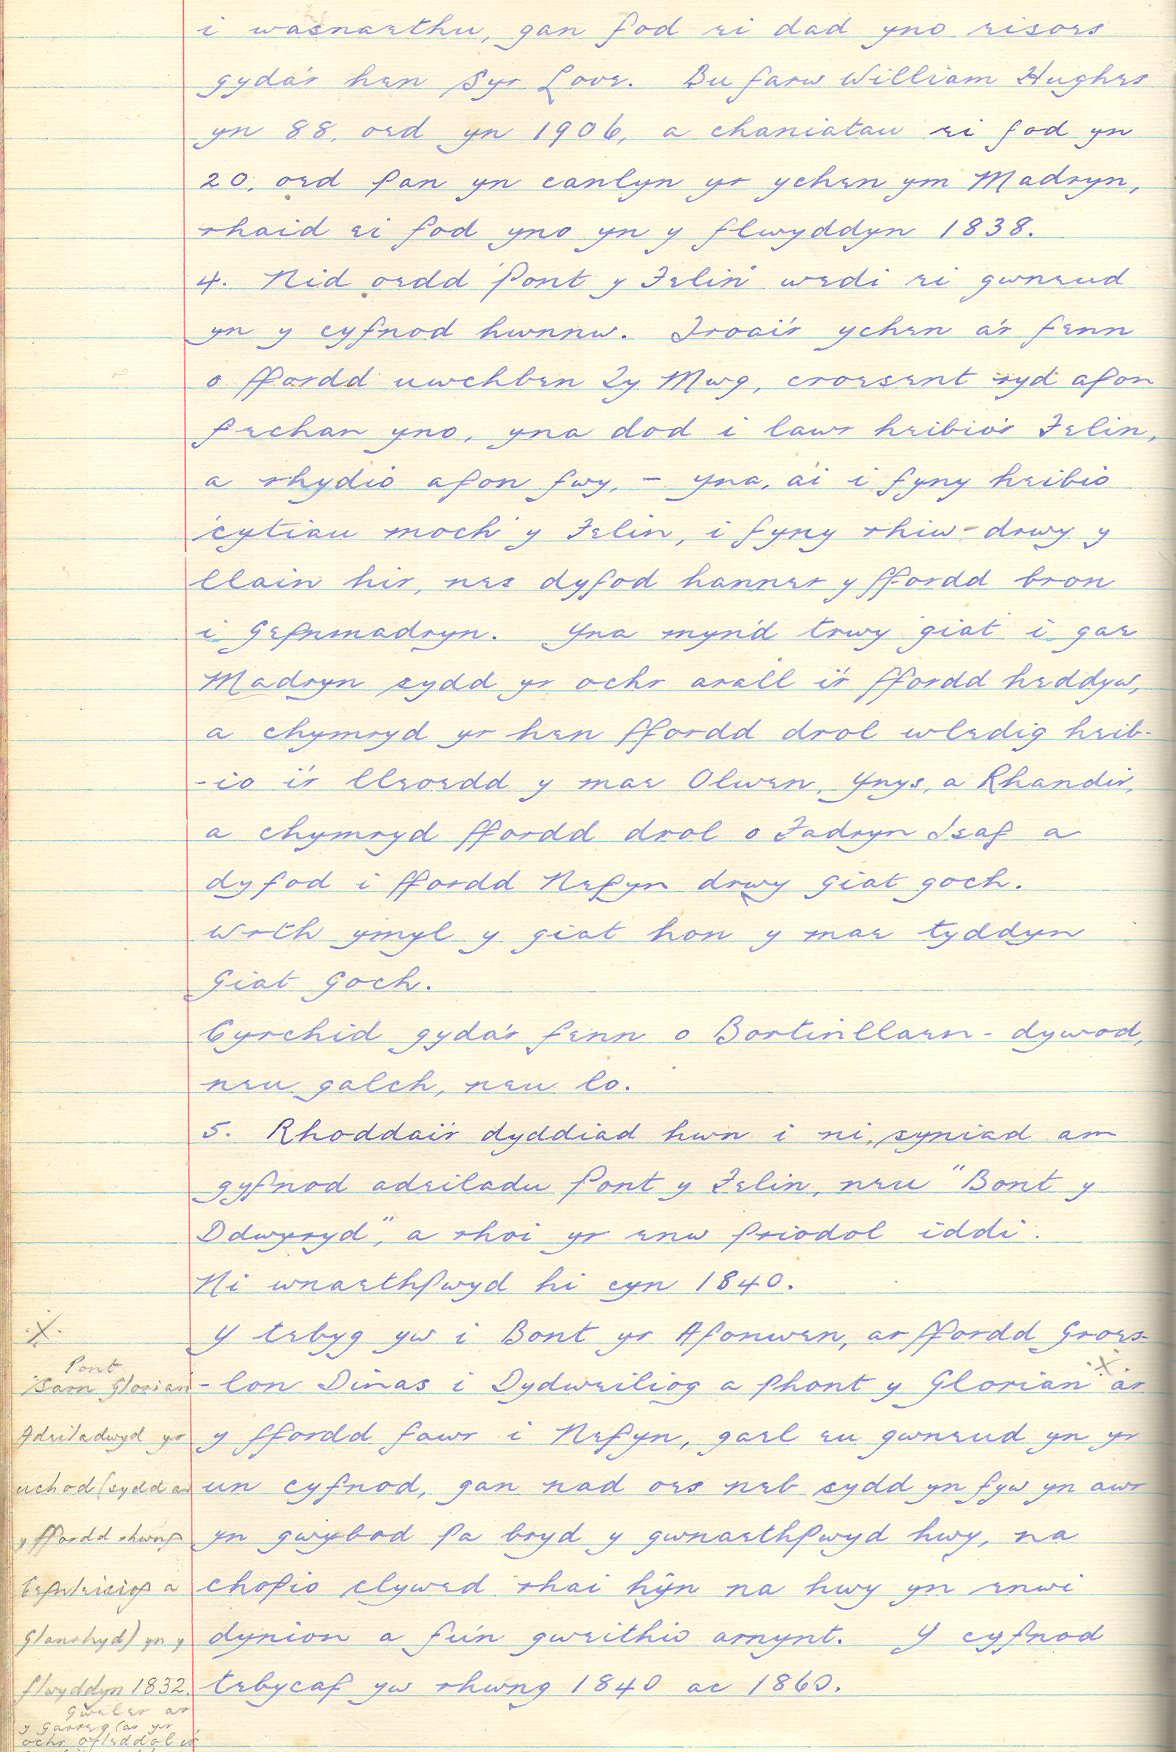 i wasnaethu, gan fod ei dad yno eisoes
gyda'r hen Syr Love. Bu farw William Hughes
yn 88. oed yn 1906, a chaniatau ei fod yn
20. oed pan yn canlyn yr ychen ym Madryn,
rhaid ei fod yno yn y flwyddyn 1838.
4. Nid oedd 'Pont y Felin' wedi ei gwneud
yn y cyfnod hwnnw. Troai'r ychen a'r fenn
o ffordd uwchben Ty Mwg, croesent ryd afon
fechan yno, yna dod i lawr heibio'r Felin,
a rhydio afon fwy, - yna, ai i fyny heibio
'cytiau moch' y Felin, i fyny rhiw - drwy y
llain hir, nes dyfod hanner y ffordd bron
i Gefnmadryn. Yna myn'd trwy giat i gae
Madryn sydd yr ochr arall i'r ffordd heddyw,
a chymryd yr hen ffordd drol wledig heib-
-io i'r lleoedd y mae Olwen, Ynys, a Rhandir,
a chymryd ffordd drol o Fadryn Isaf a
dyfod i ffordd Nefyn drwy Giat goch.
Wrth ymyl y giat hon y mae tyddyn
Giat Goch.
Cyrchid gyda'r fenn o Bortinllaen - dywod,
neu galch, neu lo.
5. Rhoddai'r dyddiad hwn i ni, syniad am
gyfnod adeiladu Pont y Felin, neu "Bont y
Ddwyryd", a rhoi yr enw priodol iddi.
Ni wnaethpwyd hi cyn 1840.
Y tebyg yw i Bont yr Afonwen, ar ffordd Groes-
-lon Dinas i Dydweiliog a phont y Glorian X ar
y ffordd fawr i Nefyn, gael eu gwneud yn yr
un cyfnod, gan nad oes neb sydd yn fyw yn awr
yn gwybod pa bryd y gwnaethpwyd hwy, na
chofio clywed rhai hŷn na hwy yn enwi
dynion a fu'n gweithio arnynt. Y cyfnod
tebycaf yw rhwng 1840 ac 1860.
X
Pont
'Sarn Glorian
Adeiladwyd yr
uchod (sydd ar
y ffordd rhwng
a
Glanrhyd) yn y
flwyddyn 1832.
Gweler ar
y garreg (ar yr
ochr